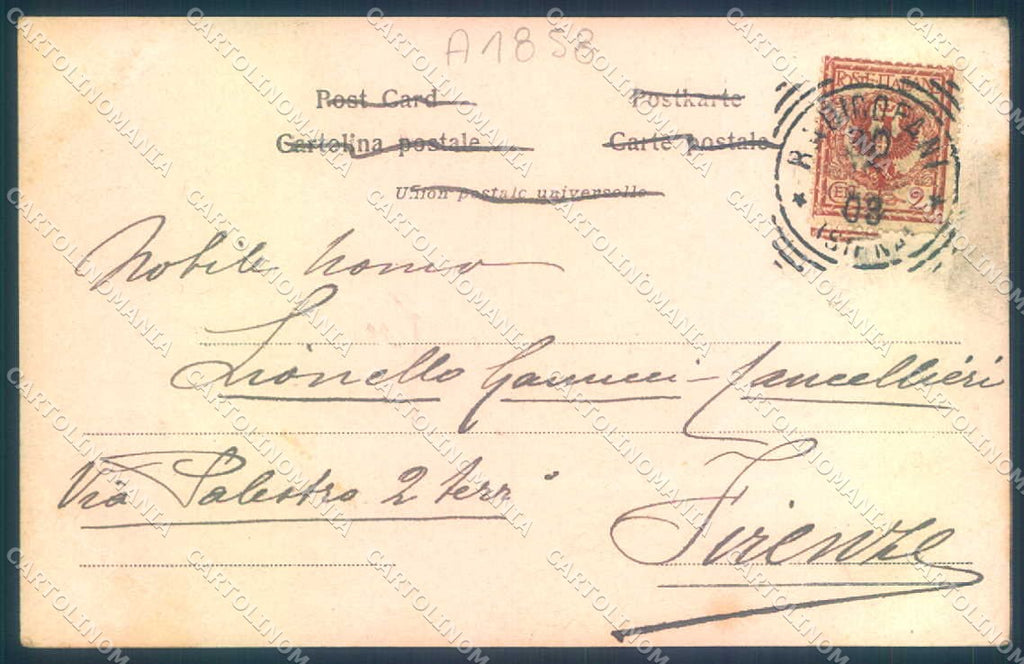 A1858
Post Card Postkarte
Cartolina postale Carte postale
Union postale universelle
POSTE ITALIANE
2
03
(SIENA)
Nobile homo
Lionello Ganucci-Cancellieri
Via Palestro 2 terr°
Firenze
CARTOLINOMANIA